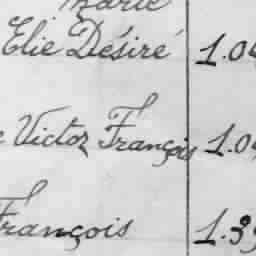 Marie
Elie Désiré 1.04
Victor François 1.0
François 1.39